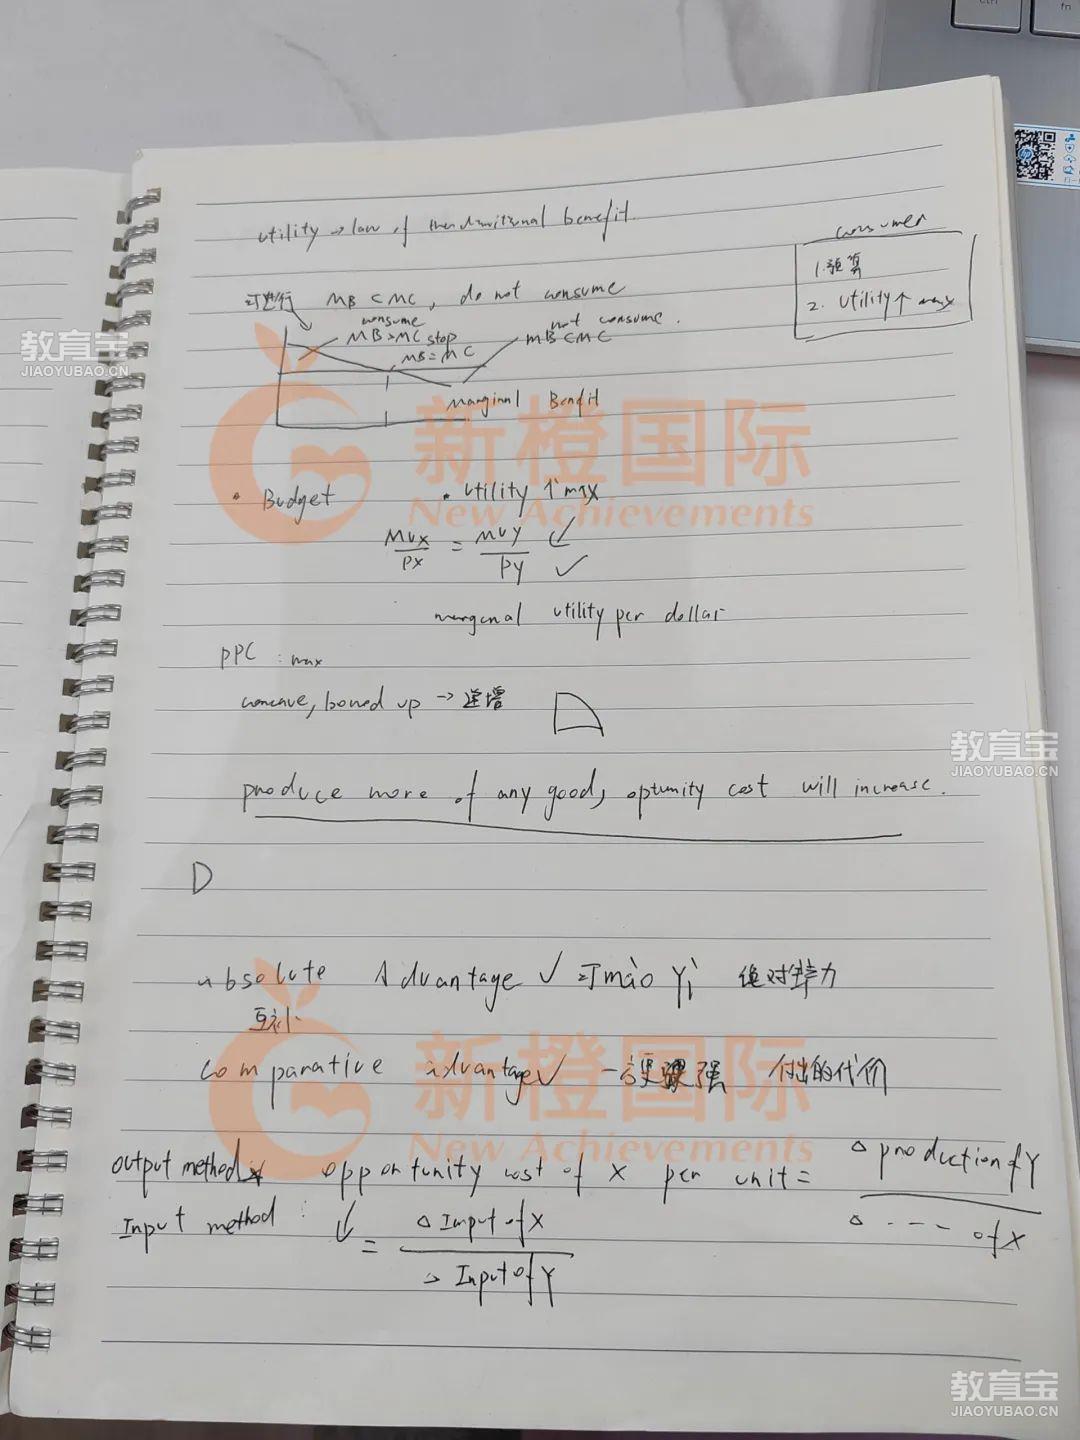 utility → law of benefit.
consumer
1. 预算
2. Utility↑ max
MB < MC, do not consume
consume
not consume.
MB>MC
stop
MB<MC
MB=MC
Marginal Benfit
新橙国际
New Achievements
• Budget
• Utility ↑max
MUX/PX = MUY/PY ✓
✓
marginal utility per dollar
PPC : max
concave, bowed up → 递增
produce more of any goods, optunity cost will increase.
D
absolute Advantage ✓ 可mào Yì 绝对能力
互补
comparative advantage✓ 付出的代价
新橙国际
New Achievements
output method: opportunity cost of X per unit = △ production of Y / △ --- of X
Input method : ↓ = △ Input of X / △ Input of Y
教育宝
JIAOYUBAO.CN
教育宝
JIAOYUBAO.CN
教育宝
JIAOYUBAO.CN
ctrl
fn
hp